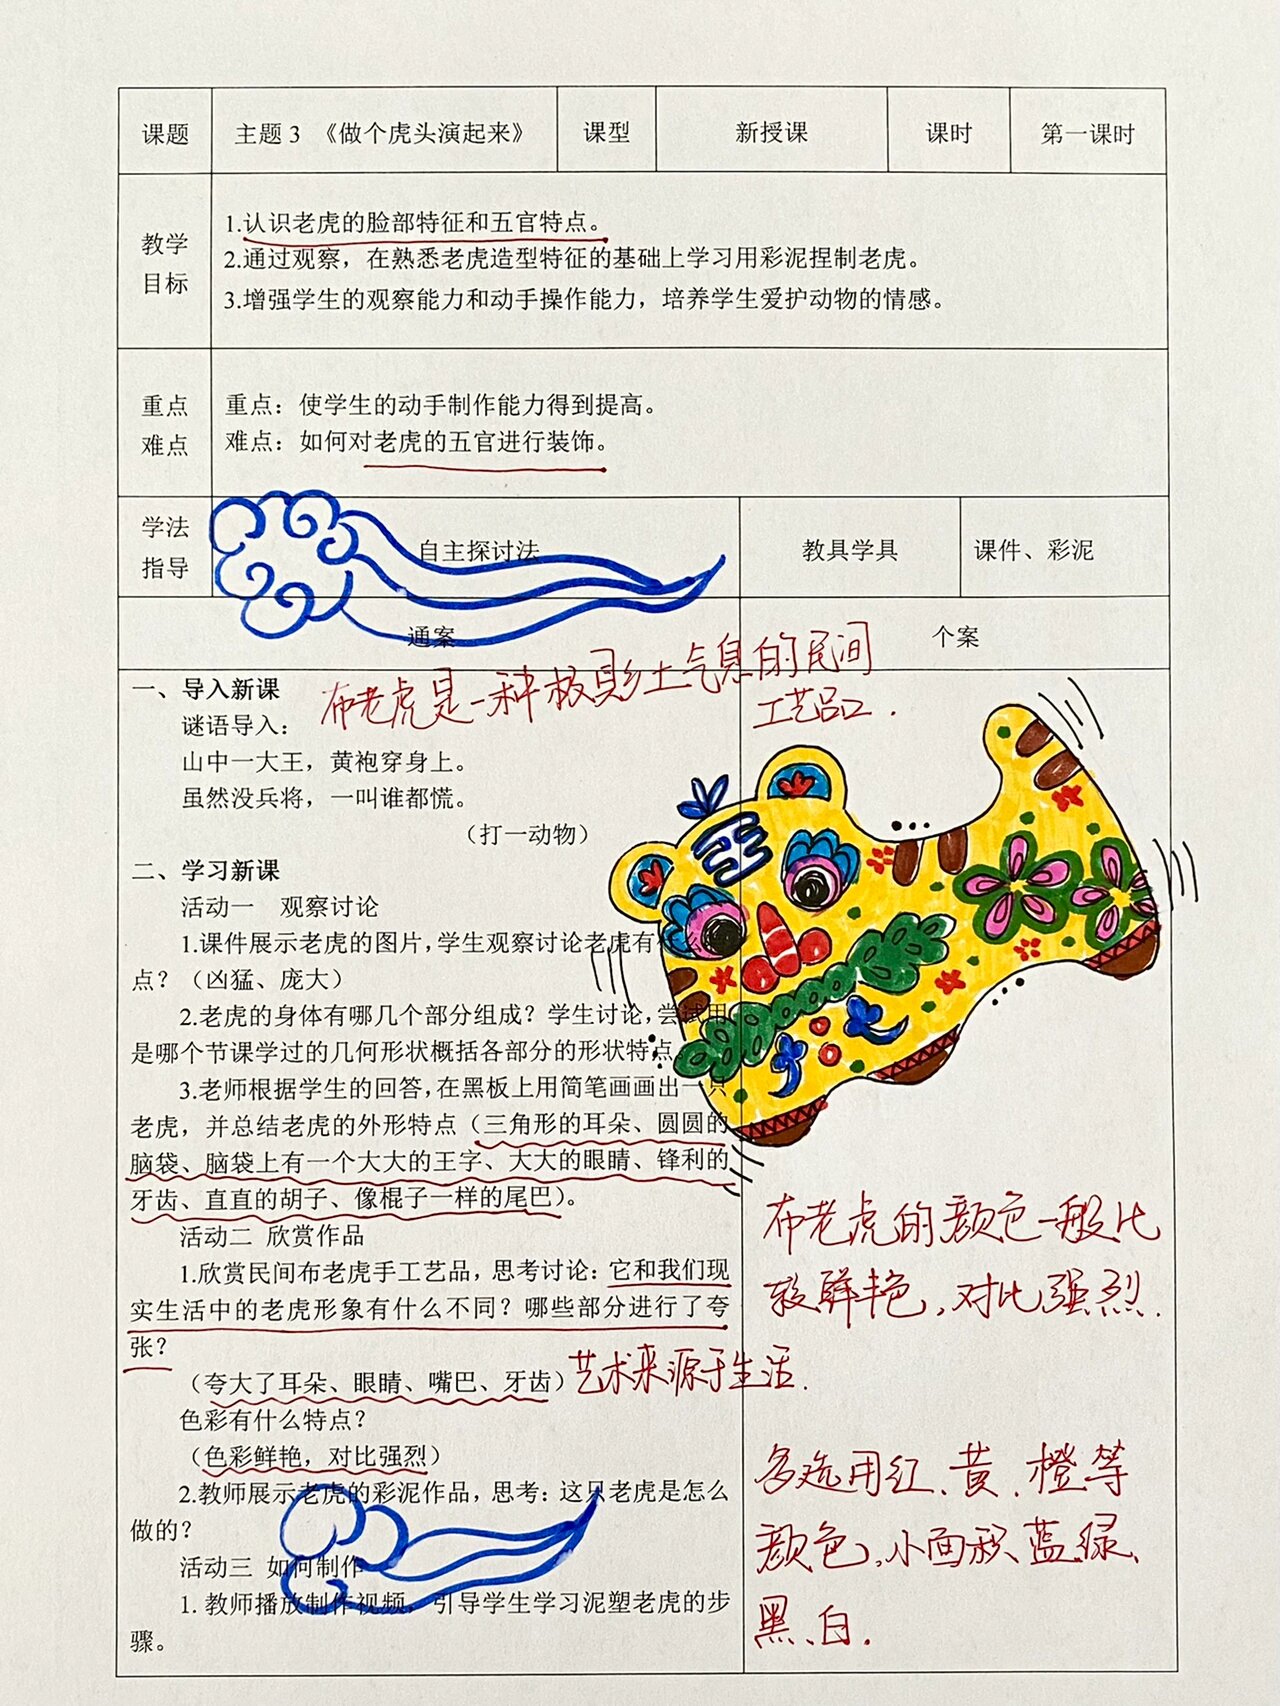 课题 主题 3 《做个虎头演起来》 课型 新授课 课时 第一课时
教学目标
1.认识老虎的脸部特征和五官特点。
2.通过观察，在熟悉老虎造型特征的基础上学习用彩泥捏制老虎。
3.增强学生的观察能力和动手操作能力，培养学生爱护动物的情感。
重点难点
重点：使学生的动手制作能力得到提高。
难点：如何对老虎的五官进行装饰。
学法指导 自主探讨法 教具学具 课件、彩泥
通案 个案
布老虎是一种极具乡土气息的民间
工艺品.
一、导入新课
谜语导入：
山中一大王，黄袍穿身上。
虽然没兵将，一叫谁都慌。
（打一动物）
二、学习新课
活动一 观察讨论
1.课件展示老虎的图片，学生观察讨论老虎有什么
点？（凶猛、庞大）
2.老虎的身体有哪几个部分组成？学生讨论，尝试用
是哪个节课学过的几何形状概括各部分的形状特点。
3.老师根据学生的回答，在黑板上用简笔画画出一只
老虎，并总结老虎的外形特点（三角形的耳朵、圆圆的
脑袋、脑袋上有一个大大的王字、大大的眼睛、锋利的
牙齿、直直的胡子、像棍子一样的尾巴）。
活动二 欣赏作品
1.欣赏民间布老虎手工艺品，思考讨论：它和我们现
实生活中的老虎形象有什么不同？哪些部分进行了夸
张？
（夸大了耳朵、眼睛、嘴巴、牙齿）艺术来源于生活.
色彩有什么特点？
（色彩鲜艳，对比强烈）
2.教师展示老虎的彩泥作品，思考：这只老虎是怎么
做的？
活动三 如何制作
1. 教师播放制作视频，引导学生学习泥塑老虎的步
骤。
王
布老虎的颜色一般比
较鲜艳,对比强烈.
多选用红、黄、橙等
颜色,小面积蓝、绿、
黑、白.